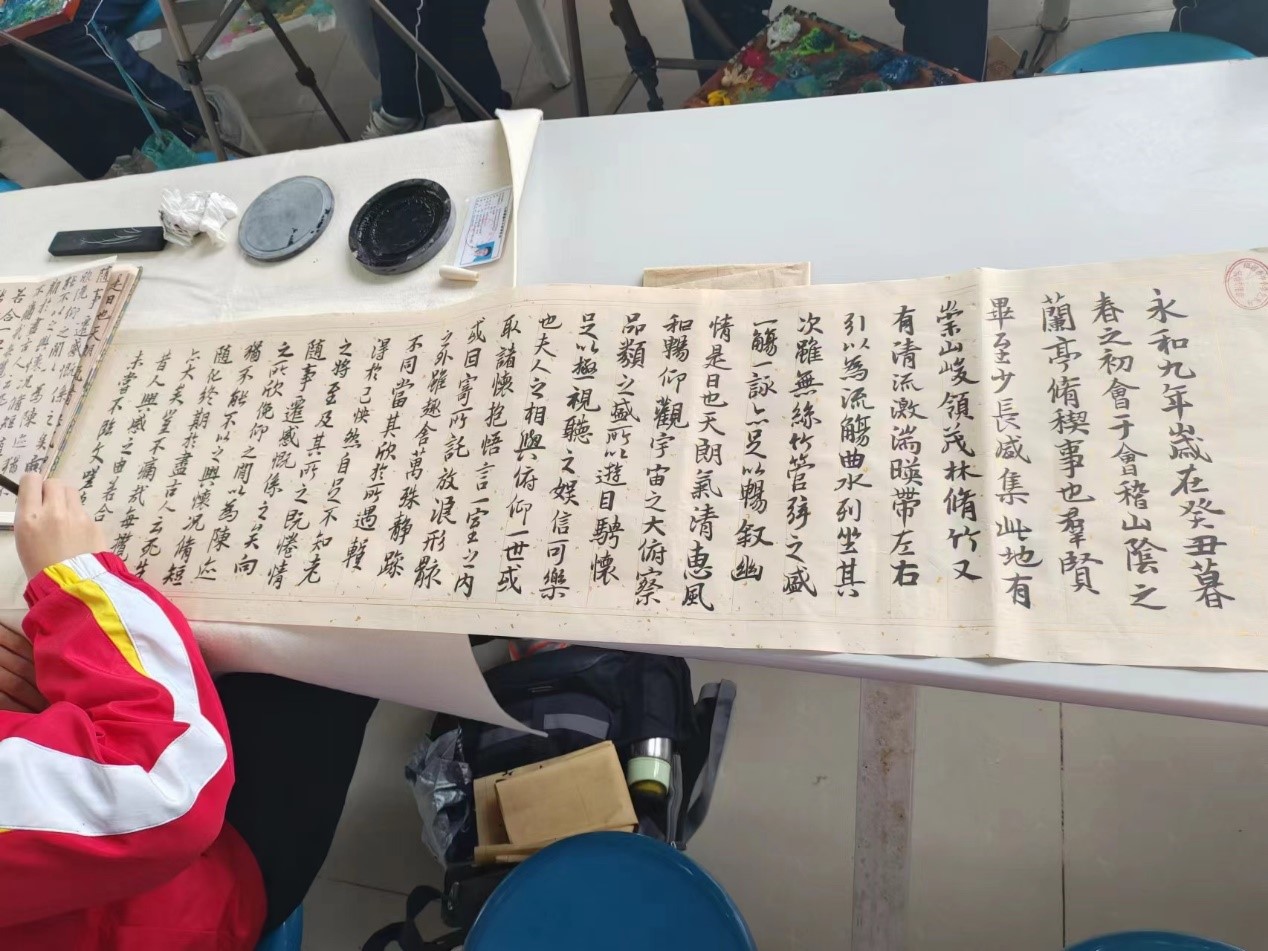 永和九年歲在癸丑暮
春之初會于會稽山陰之
蘭亭脩稧事也羣賢
畢至少長咸集此地有
崇山峻領茂林脩竹又
有清流激湍暎帶左右
引以為流觴曲水列坐其
次雖無絲竹管弦之盛
一觴一詠亦足以暢叙幽
情是日也天朗氣清惠風
和暢仰觀宇宙之大俯察
品類之盛所以遊目騁懷
足以極視聽之娛信可樂
也夫人之相與俯仰一世或
取諸懷抱悟言一室之內
或因寄所託放浪形骸
之外雖趣舍萬殊静躁
不同當其欣於所遇輙
得於己怏然自足不知老
之將至及其所之既惓情
隨事遷感慨係之矣向
之所欣俛仰之閒以為陳迹
猶不能不以之興懷況脩短
隨化終期於盡古人云死生
亦大矣豈不痛哉每攬
昔人興感之由若合
未嘗不臨文嗟
是日也天朗